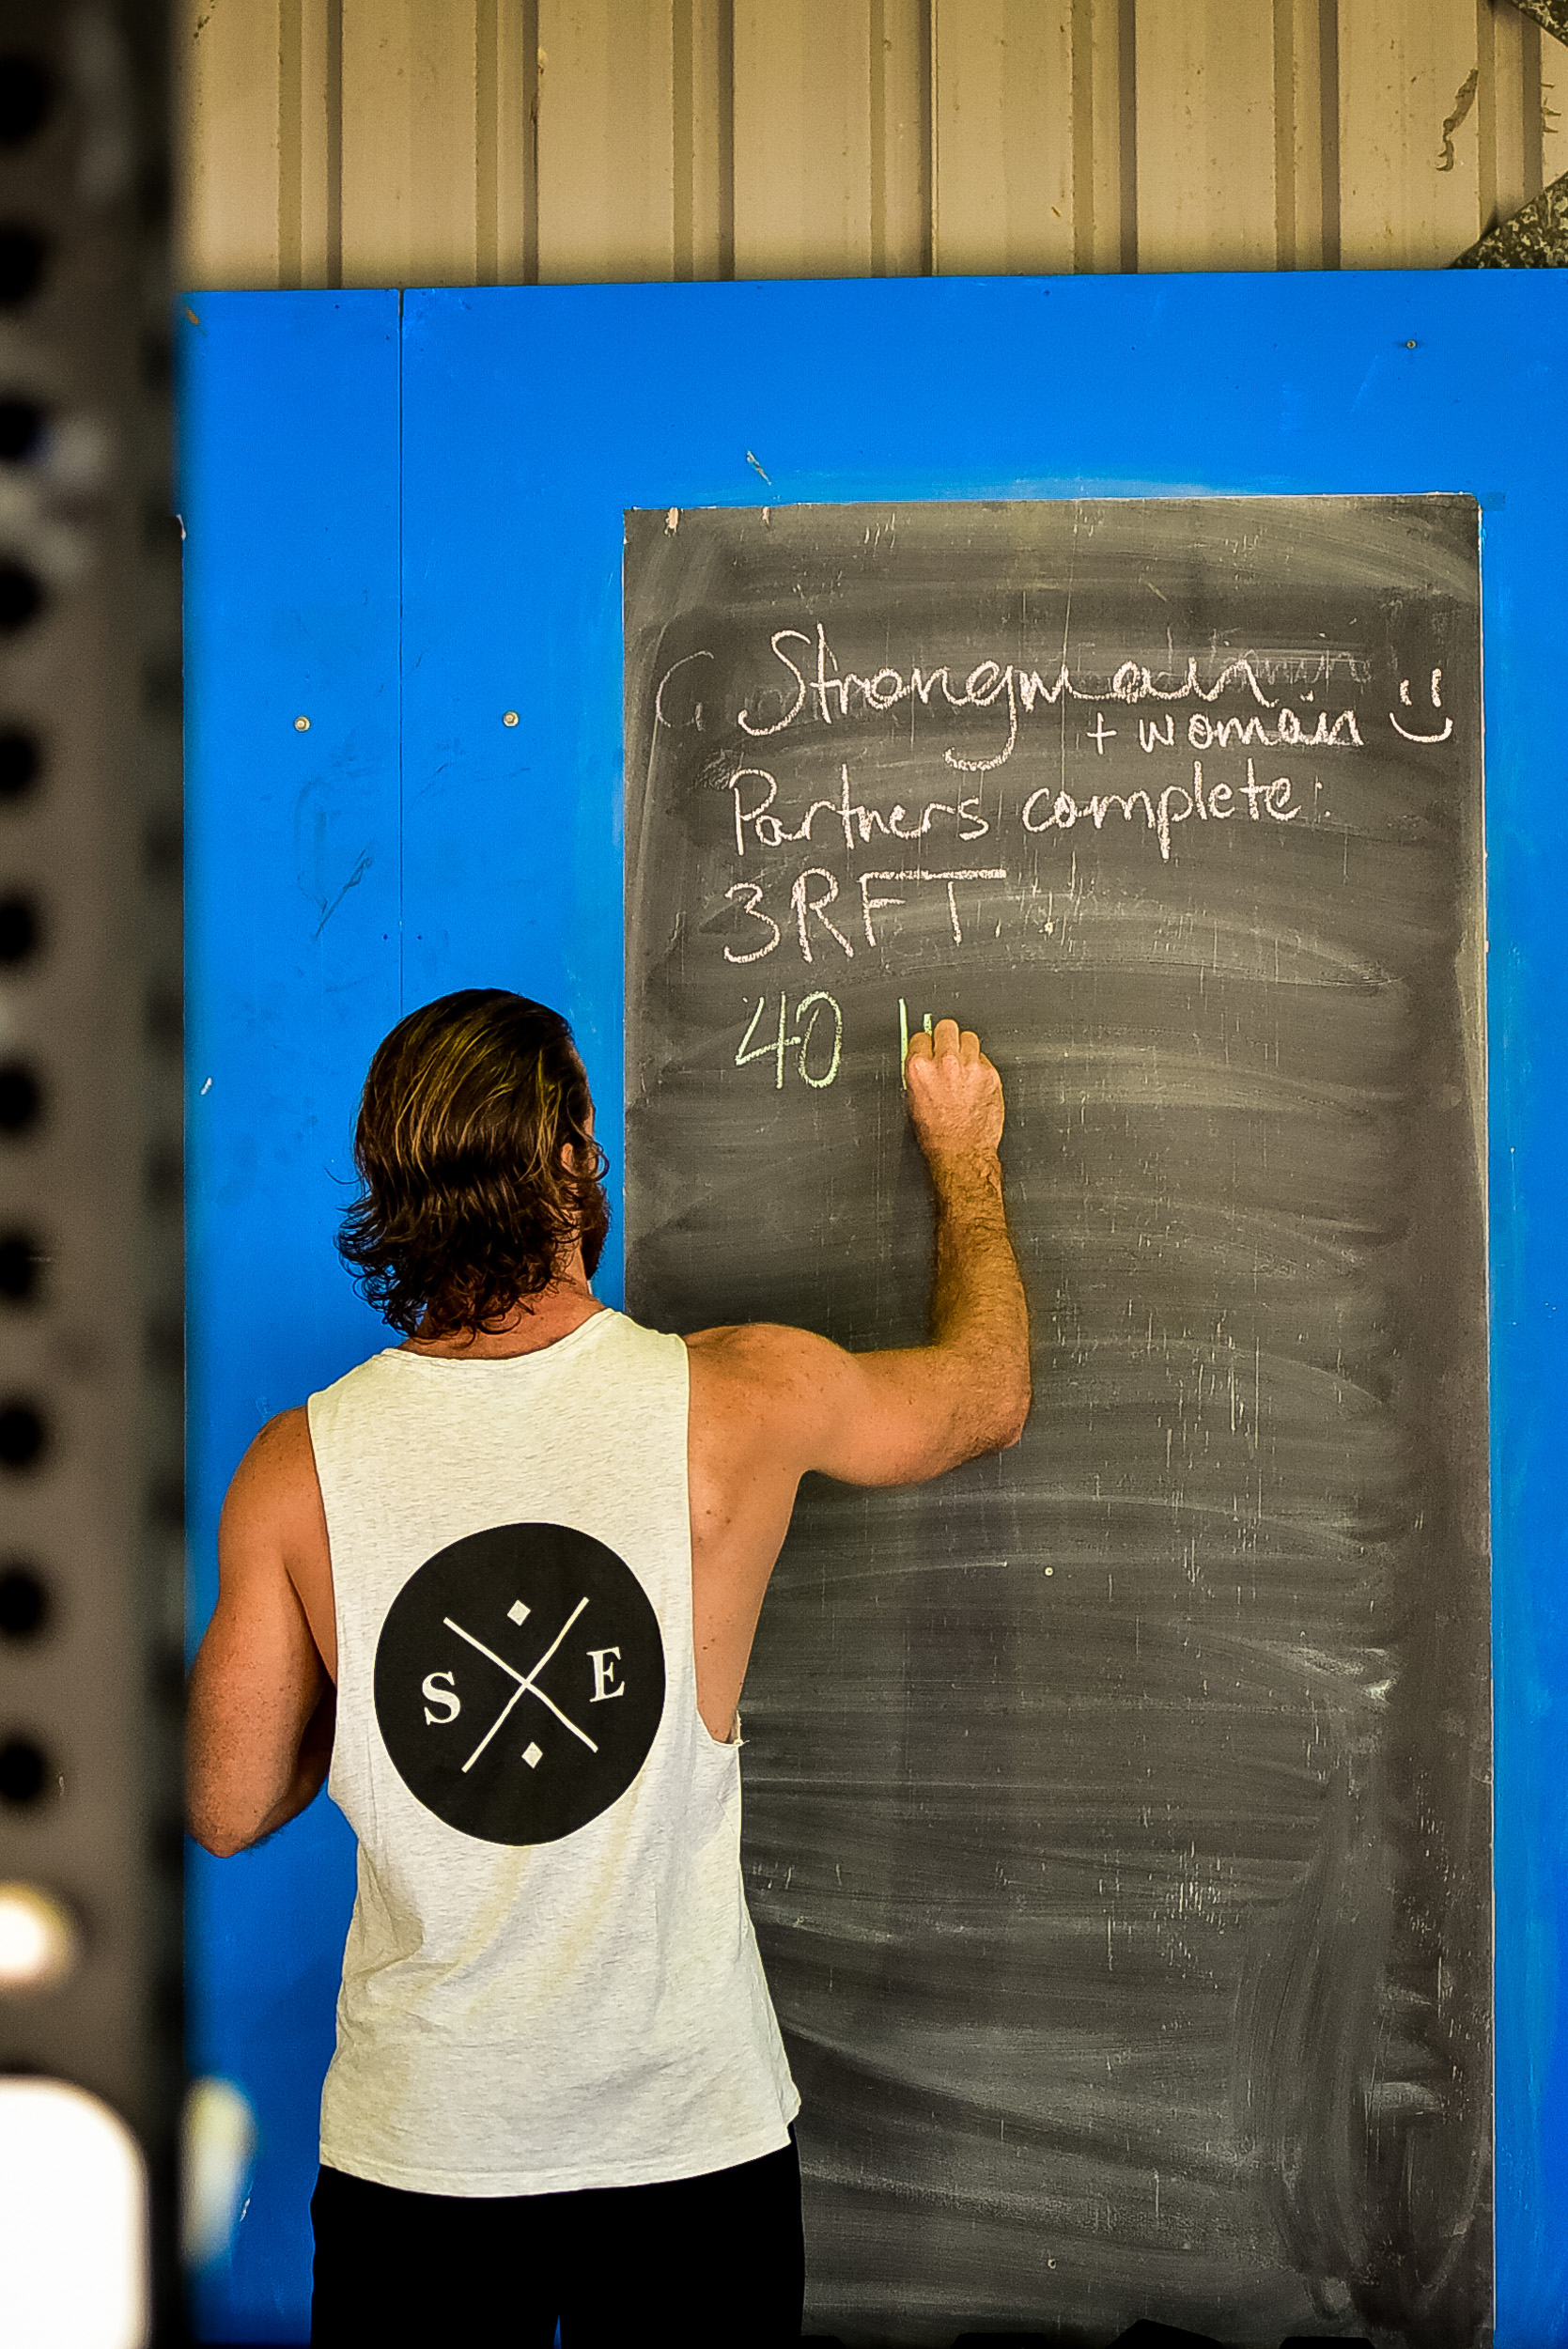 Strongman
+ woman
Partners complete:
3RFT.
40
S E